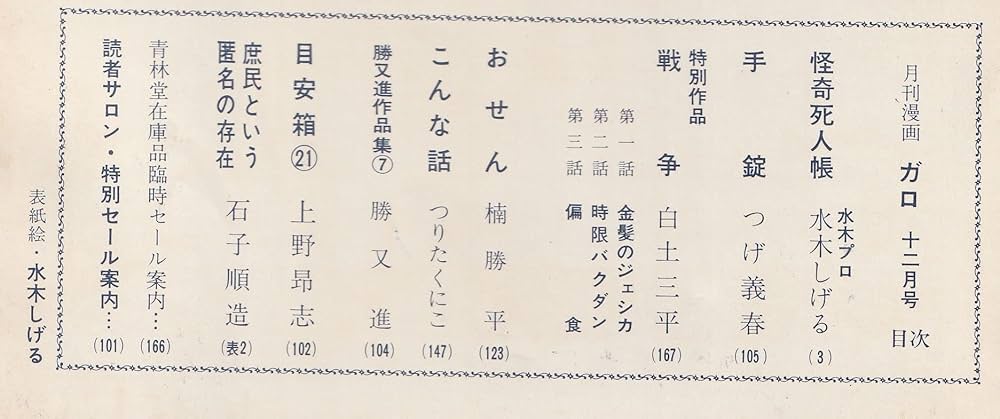 月刊漫画 ガロ 十二月号 目次
怪奇死人帳 水木プロ 水木しげる (3)
手錠 つげ義春 (105)
特別作品
戦争 白土三平 (167)
第一話 金髪のジェシカ
第二話 時限バクダン
第三話 偏食
おせん 楠勝平 (123)
こんな話 つりたくにこ (147)
勝又進作品集⑦ 勝又進 (104)
目安箱㉑ 上野昂志 (102)
庶民という
匿名の存在 石子順造 (表2)
青林堂在庫品臨時セール案内… (166)
読者サロン・特別セール案内… (101)
表紙絵・水木しげる